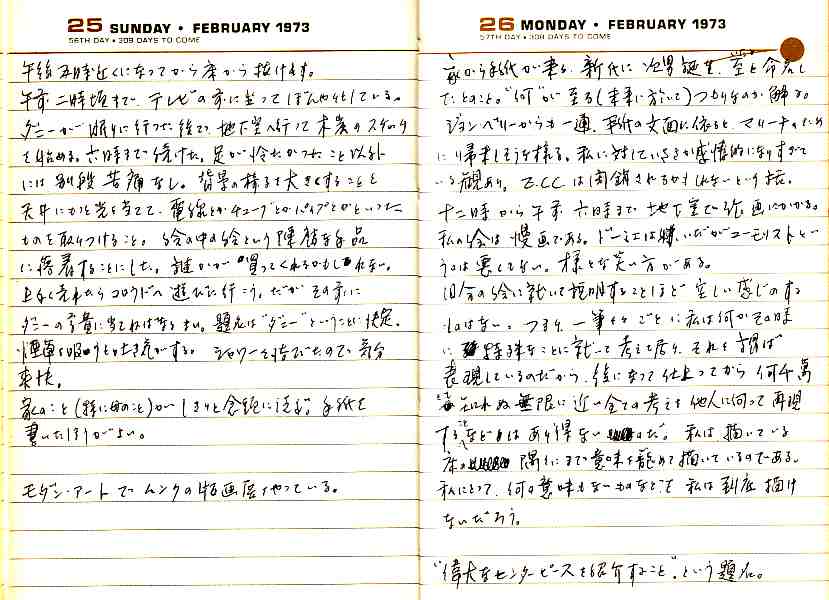 25 SUNDAY • FEBRUARY 1973
56TH DAY • 309 DAYS TO COME
午後五時近くになってから床から抜け出す。
午前二時頃まで、テレビの前に坐ってぼんやりとしている。
ダニーが眠りに行った後で、地下室へ行って木炭のスケッチ
を始める。六時まで続けた。足が冷たかったこと以外
には別段苦痛なし。背景の様子を大きくすること
天井にかと光を当てて、電線とかチューブとかパイプとかといった
ものを取りつけること。絵の中の絵という陳腐な品
に落着することにした。誰かが買ってくれるかもしれない。
上手く売れたらコロラドへ遊びに行こう。だがその前に
ダニーの学費に当てねばなるまい。題名は"ダニー"ということに決定。
煙草を吸うと吐き気がする。シャワーを浴びたので気分
爽快。
家のこと(特に母のこと)がしきりと念頭に浮ぶ。手紙を
書いたほうがよい。
モダン・アートでムンクの版画展をやっている。
26 MONDAY • FEBRUARY 1973
57TH DAY • 308 DAYS TO COME
家から手紙が来る。新代に次男誕生、至と命名し
たとのこと。"何"が至る(未来に於いて)つもりなのか解る。
ジョン・ペリーからも一通、事件の文面に依ると、マリーナのため
に帰来しそうな様子。私に対していささか感情的になりすぎて
いる観あり。Z.C.C は閉鎖されるかもしれないという報。
十二時から午前六時まで地下室で絵画にかかる。
私の絵は漫画である。ドーミエは嫌いだがユーモリストとい
うのは悪くない。様々な笑い方がある。
自分の絵に就いて説明することほど空しい感じのする
ものはない。つまり、一筆々々ごとに私は何かその時
に特殊なことに就いて考えて居り、それを謂わば
表現しているのだから、後になって仕上ってから何千万
とも知れぬ無限に近い全ての考えを他人に向って再現
することなどはあり得ないのだ。私は描いている
床の隅々にまで意味を籠めて描いているのである。
私にとって、何の意味もないものなどを私は到底描け
ないだろう。
"偉大なセンターピースを紹介すること"という題名。